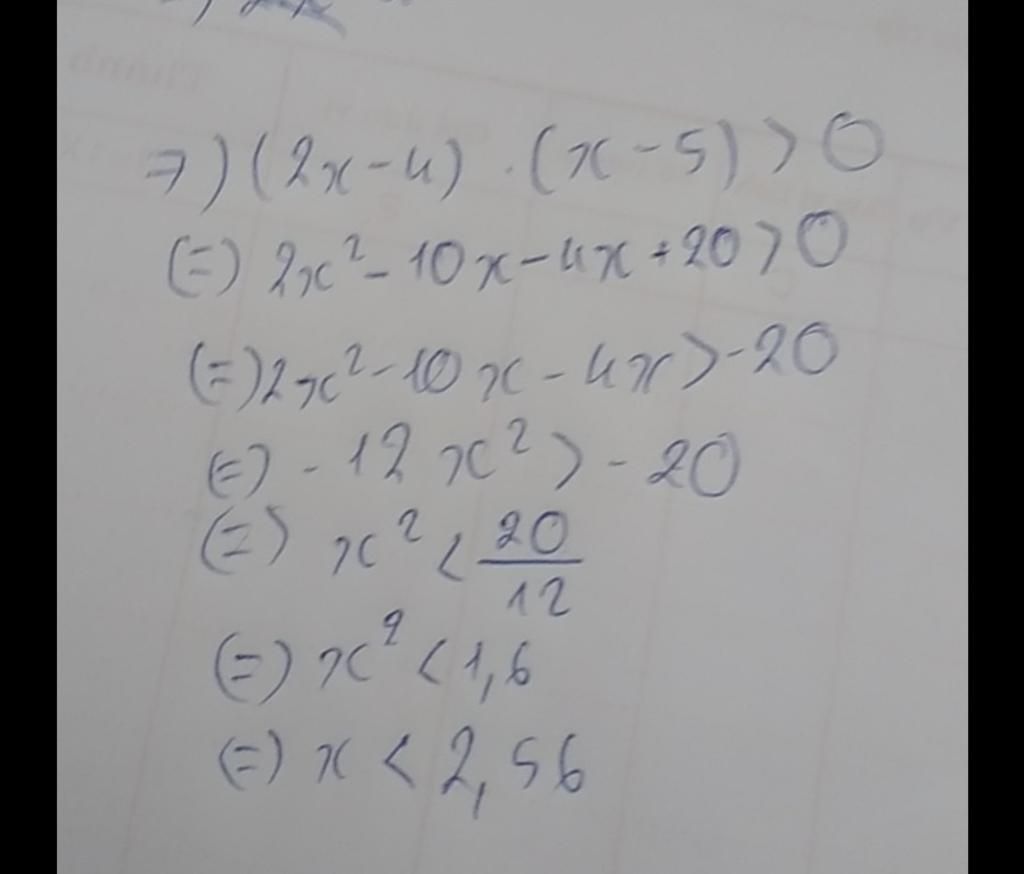 => ) (2x - 4) . (x - 5) > 0
(=) 2x² - 10x - 4x + 20 > 0
(=) 2x² - 10x - 4x > -20
(=) - 12x² > - 20
(=) x² < 20/12
(=) x² < 1,6
(=) x < 2,56